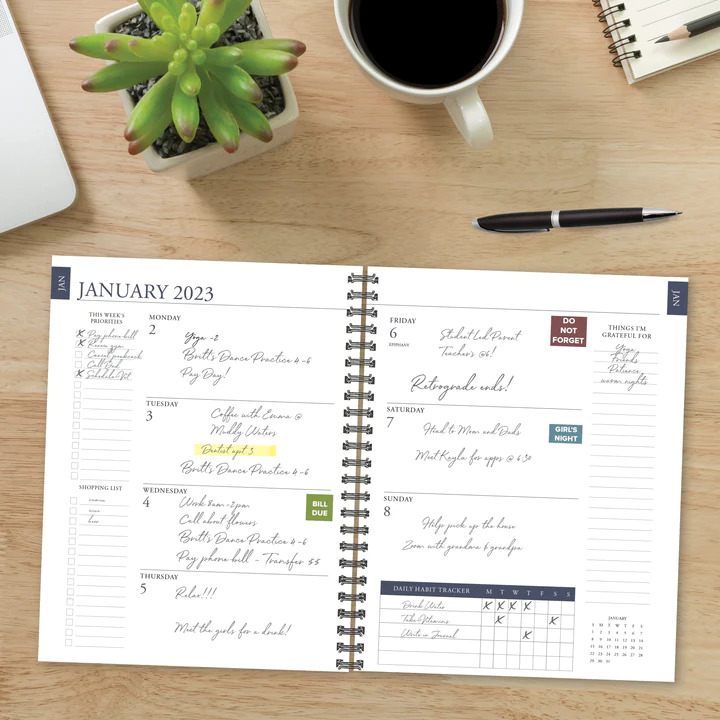 JAN
JANUARY 2023
THIS WEEK'S
PRIORITIES
Pay phone bill
Call Dad
Schedule Vet
SHOPPING LIST
MONDAY
2
Yoga -2
Britt's Dance Practice 4-6
Pay Day!
TUESDAY
3
Coffee with Emma @
Muddy Waters
Dentist apt. 3
Britt's Dance Practice 4-6
WEDNESDAY
4
Work 8am-2pm
Call about flowers
Britt's Dance Practice 4-6
Pay phone bill - Transfer $$
BILL
DUE
THURSDAY
5
Relax!!!
Meet the girls for a drink!
JAN
FRIDAY
6
EPIPHANY
Student Led Parent
Teacher's @6!
Retrograde ends!
DO
NOT
FORGET
SATURDAY
7
Head to Mom and Dads
Meet Kayla for apps @ 6:30
GIRL'S
NIGHT
SUNDAY
8
Help pick up the house
Zoom with grandma & grandpa
THINGS I'M
GRATEFUL FOR
Yoga
Friends
Patience
warm nights
DAILY HABIT TRACKER M T W T F S S
Drink Water X X X X
Take Vitamins X X
Write in Journal X
JANUARY
S M T W T F S
1 2 3 4 5 6 7
8 9 10 11 12 13 14
15 16 17 18 19 20 21
22 23 24 25 26 27 28
29 30 31